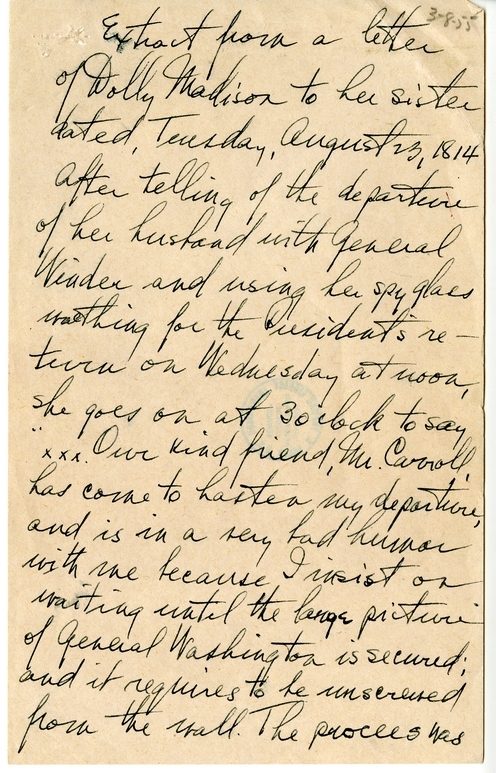 3-8-55
Extract from a letter
of Dolly Madison to her sister
dated, Tuesday, August 23, 1814
After telling of the departure
of her husband with General
Winder and using her spy glass
watching for the President's re-
turn on Wednesday at noon,
she goes on at 3 oclock to say
"xxx. Our kind friend, Mr. Carroll,
has come to hasten my departure,
and is in a very bad humor
with me because I insist on
waiting until the large picture
of General Washington is secured;
and it requires to be unscrewed
from the wall. The process was